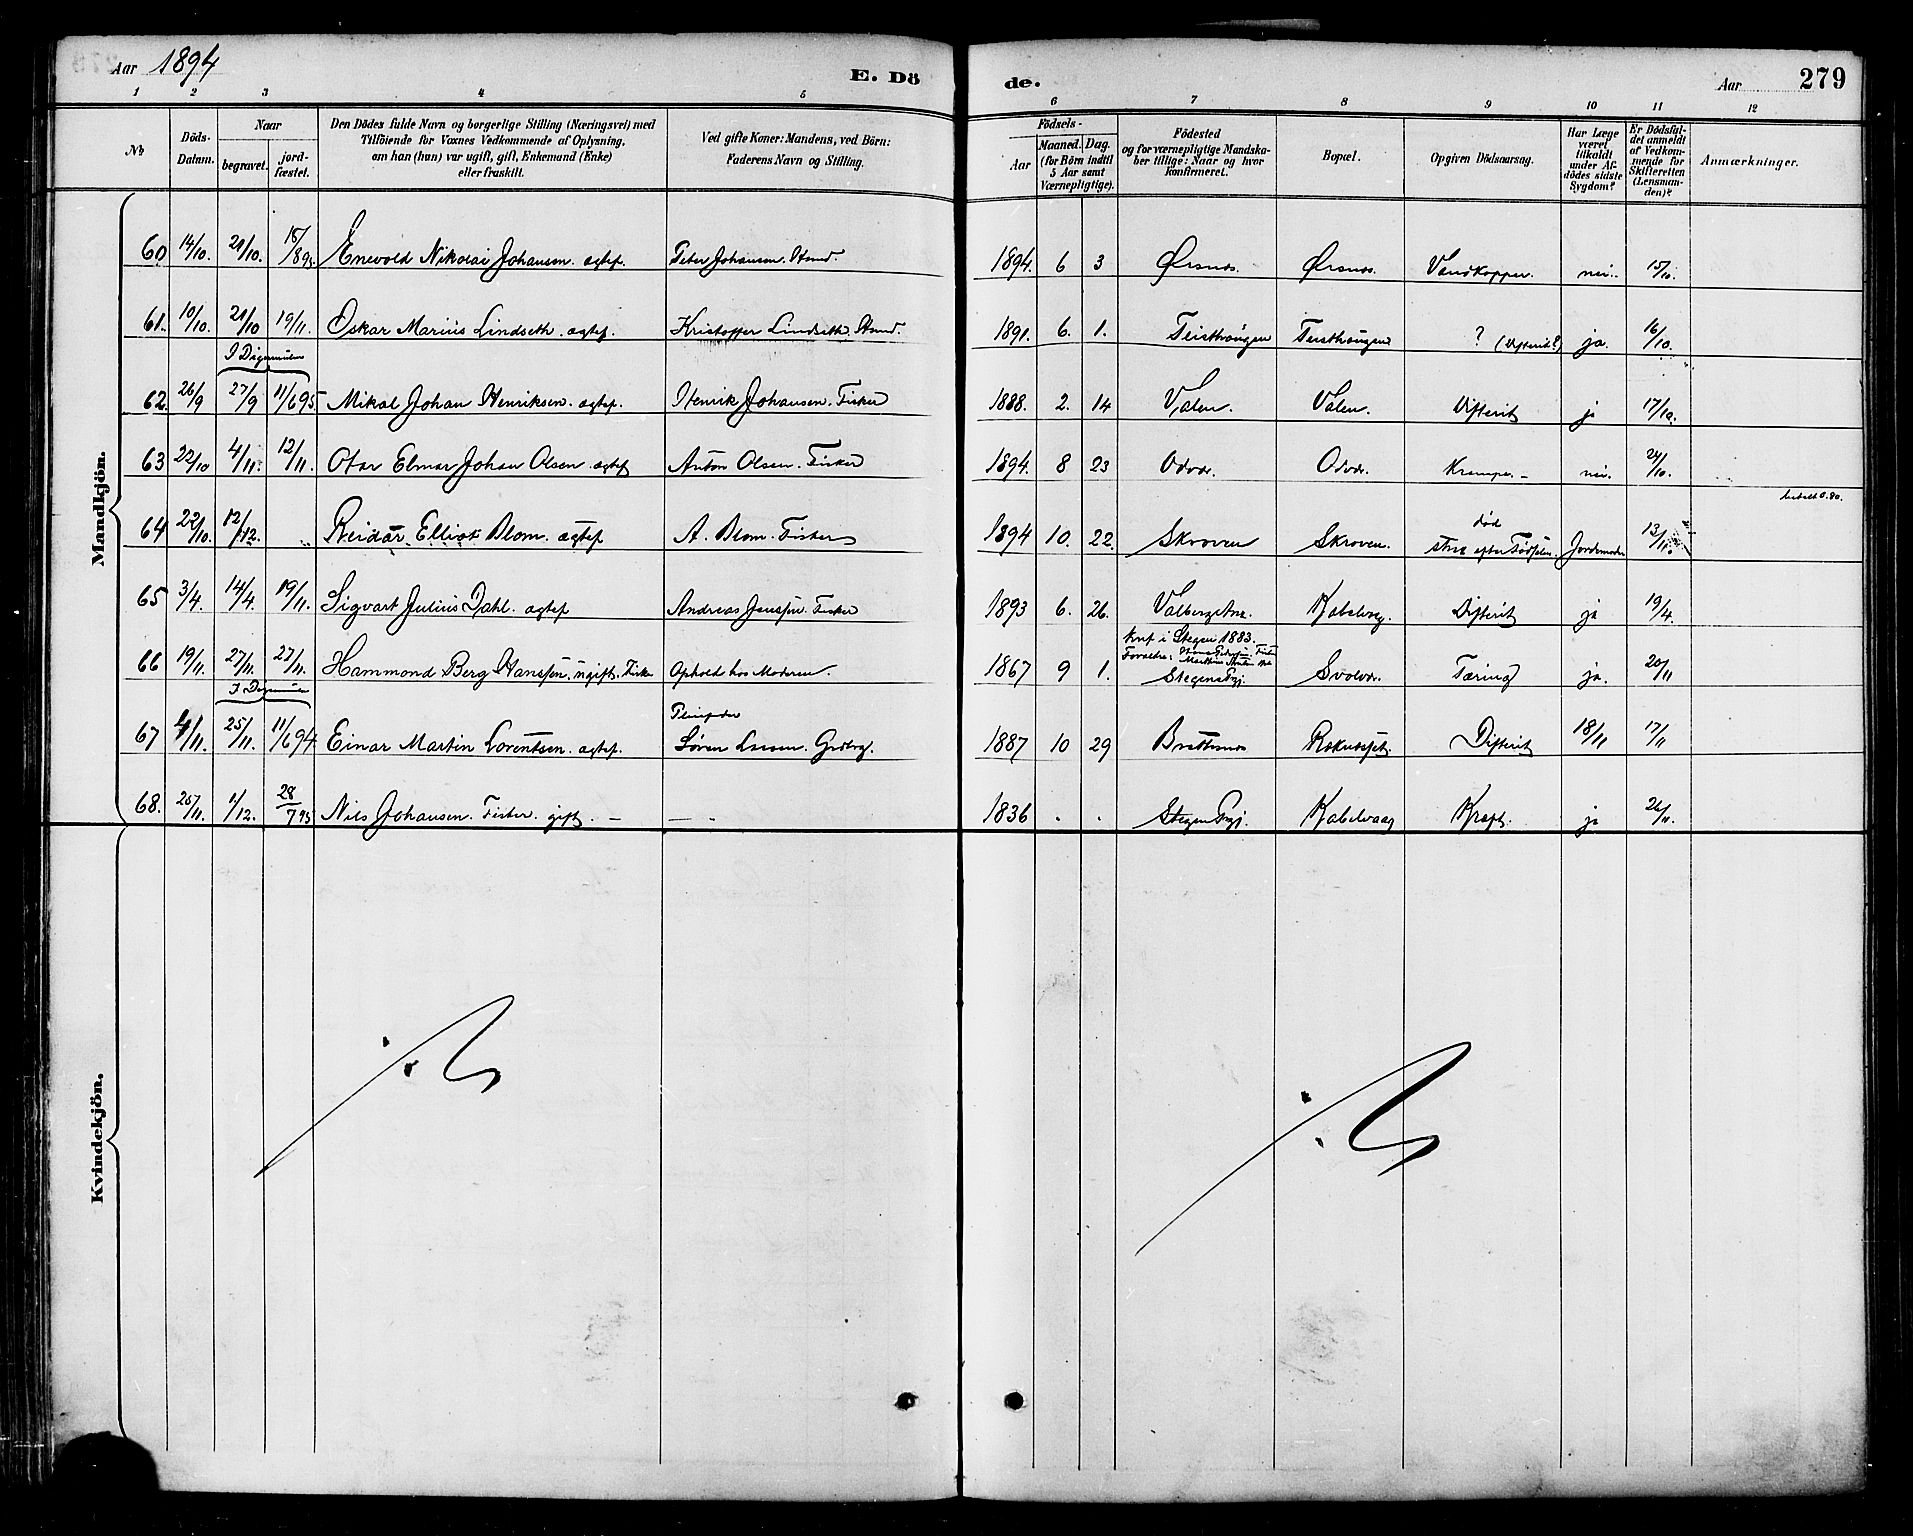 Aar 1894 E. Dö de. Aar 279
1 2 3 4 5 6 7 8 9 10 11 12
№ Döds-Datum. Naar begravet. jord-fæstet. Den Dödes fulde Navn og borgerlige Stilling (Næringsvei) med Tilföiende for Voxnes Vedkommende af Oplysning, om han (hun) var ugift, gift, Enkemand (Enke) eller fraskilt. Ved gifte Koner: Mandens, ved Börn: Faderens Navn og Stilling. Födsels- Aar Maaned. Dag. (for Börn indtil 5 Aar samt Værnepligtige). Födested og for værnepligtige Mandskaber tillige: Naar og hvor konfirmeret. Bopæl. Opgiven Dödsaarsag. Har Læge været tilkaldt under Afdödes sidste Sygdom? Er Dödsfaldet anmeldt af Vedkommende for Skifteretten (Lensmanden)? Anmærkninger.
Mandkjön.
60 14/10. 21/10. 15/8 95. Enevold Nikolai Johansen. ægtef. Peter Johansen. 1894. 6 3 Ørsnes. Ørsnes. Vandkopper. nei. 15/10.
61. 10/10. 21/10 19/11. Oskar Marius Lindseth. ægtef. Kristoffer Lindseth. 1891. 6. 1. ? (Difterit?) ja. 16/10.
I Digermulen
62. 26/9 27/9 11/6 95 Mikal Johan Henriksen. ægtef. Henrik Johansen. Fisker 1888. 2. 14 Valen. Valen. Difterit ja 17/10.
63 22/10 4/11. 12/11. Otar Elmar Johan Olsen. ægtef Anton Olsen. Fisker 1894. 8 23 Odvær. Odvær. Kramper. nei. 24/10.
betalt 0.80.
64 22/10. 12/12. Reidar Elliot Blom. ægtef A. Blom. Fisker 1894 10. 22. Skroven Skroven. død strax efter Fødselen. Jordemoder 13/11.
65 3/4. 14/4. 19/11. Sigvart Julius Dahl. ægtef Andreas Jenssen. Fisker 1893 6. 26. Kabelvaag. Difterit ja 19/4.
Knf i Stegen 1883.
66 19/11. 27/11. 27/11. Hammond Berg Hanssen. ugift. Fisker Ophold hos Moderen. 1867 9 1. Stegens Prgj. Svolvær. Tæring ja. 20/11
I Digermulen
67 4/11. 25/11. 11/6 94. Einar Martin Lorentsen. ægtef. Pleiefader Søren Larsen. 1887 10 29 Brettesnes Difterit 18/11 17/11
68. 25/11. 1/12. 28/7 95 Nils Johansen. Fisker. gift. 1836 Stegen Prgj. Kabelvaag Kræft. ja 26/11.
Kvindekjön.